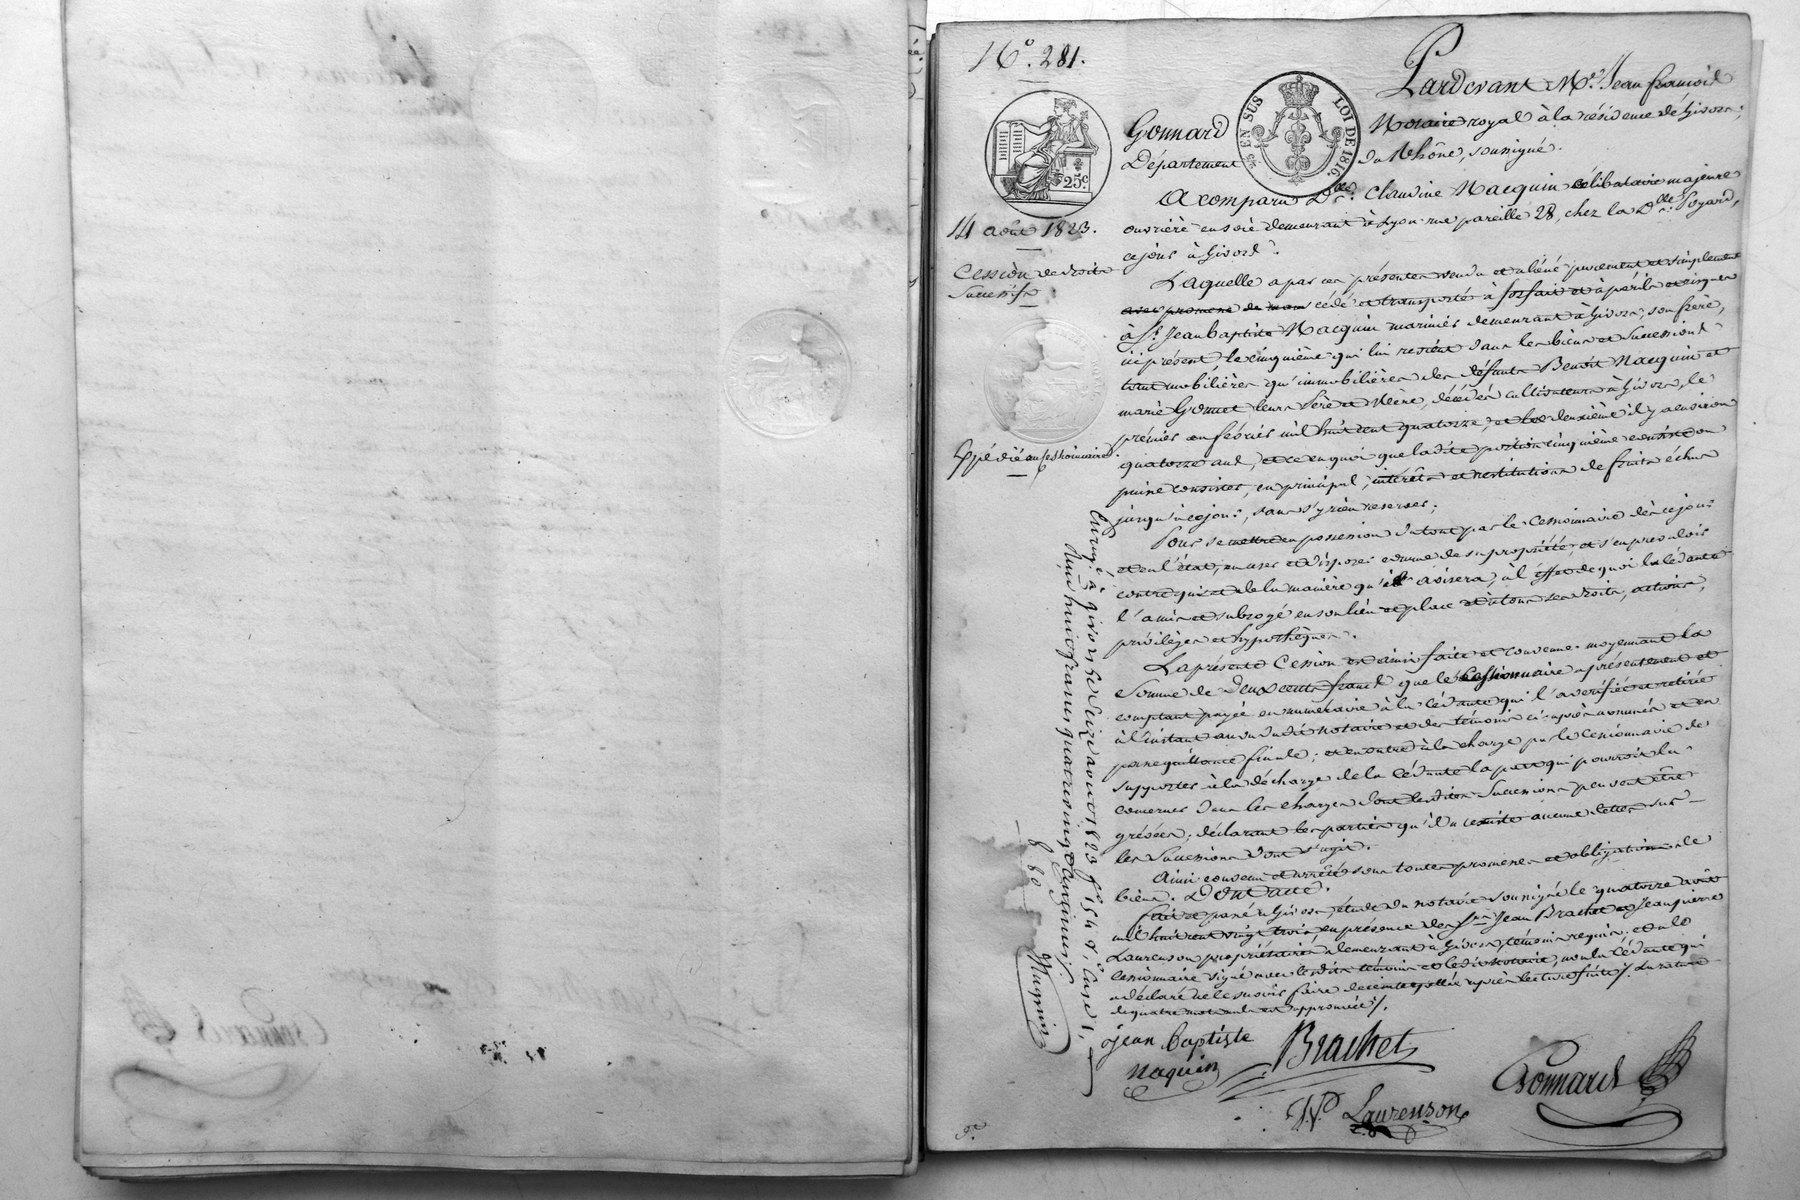 N.° 281.
Pardevant Me. Jean françois
Gonnard Notaire royal à la résidence de Givors,
Département du Rhône, soussigné.
25 EN SUS
LOI DE 1816.
25c
14 août 1823.
Cession de droits
Successifs
Expédié au cessionnaire
A comparu Dlle. Claudine Nacquin célibataire majeure
ouvrière en soie demeurant à Lyon rue pareille 28, chez la Dlle. Poyard,
ce jour à Givors.
Laquelle a par ces présentes vendu et aliéné purement et simplement
cédé et transporté à forfait et à périls et risques
à Sr. Jean baptiste Nacquin marinier demeurant à Givors, son frère,
ici présent le cinquième qui lui revient dans les biens et Successions
tant mobilières qu'immobilières des défunts Benoit Nacquin et
marie Gonnet leurs Père et Mère, décédés cultivateurs à Givors, le
premier en février mil huit cent quatorze, et la deuxième il y a environ
quatorze ans, et ce en quoi que la dite portion cinquième consiste ou
puisse consister, en principal, intérêts et restitutions de fruits échus
jusqu'à ce jour, sans s'y rien reserver;
Pour se mettre en possession du tout par le Cessionnaire dès ce jour
et en l'état, en user et disposer comme de sa propriété, et s'en prévaloir
contre qui et de la manière qu'il avisera, à l'effet de quoi la Cédante
l'a mis et subrogé en son lieu et place et à tous ses droits, actions,
privilèges et hypothèques.
La présente Cession est ainsi faite et convenue moyennant la
Somme de Deux cents francs que le Cessionnaire a présentement et
comptant payée en numéraire à la Cédante qui l'a vérifiée et retirée
à l'instant au vu du dit notaire et des témoins ci-après nommés et en
passe quittance finale; et en outre à la charge par le Cessionnaire de
supporter à la décharge de la Cédante la part qui pourroit la
concerner dans les charges dont les dites Successions peuvent être
grévées, déclarant les parties qu'il n'existe aucune dettes sur
les Successions dont s'agit.
Ainsi convenu et arrêté sous toutes promesses et obligations de
biens. Dont acte.
fait et passé à Givors, étude du notaire soussigné le quatorze août
mil huit cent vingt trois en présence des Srs. Jean Brachet et Jean pierre
Laurenson propriétaires demeurant à Givors, témoins requis, et a le
cessionnaire signé avec les dits témoins et le dit notaire, non la Cédante qui
a déclaré ne le savoir faire de ce interpellée après lecture faite /. La rature
de quatre mots nuls est approuvée /.
Jean Baptiste
Naquin
Brachet
J.P. Laurenson
Gonnard
Enregé. à givors le Seize aout 1823 f° 154 Vo. Case 1,
Reçu huit francs quatre vingt centimes.
8 80
Magnin